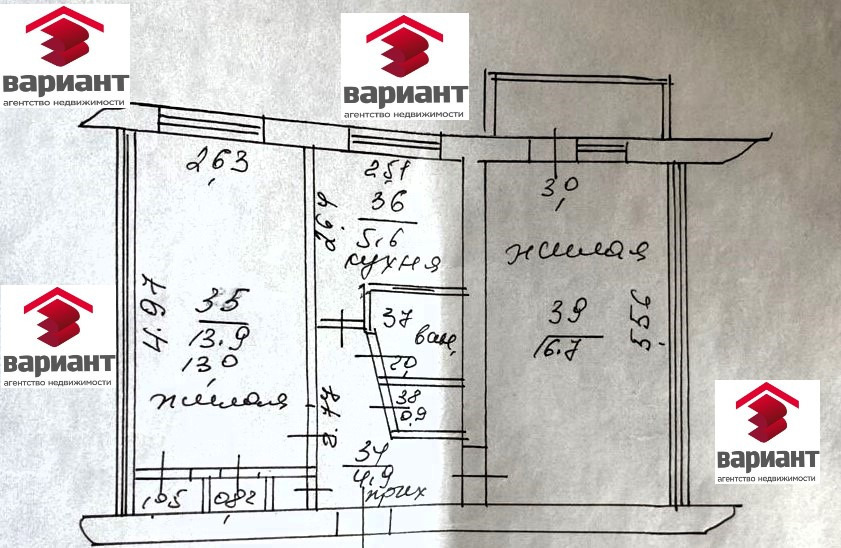 ВАРИАНТ
агентство недвижимости
ВАРИАНТ
агентство недвижимости
2,63
2,51
36
5,6
кухня
2.64
3,0
жилая
39
16.7
5.56
ВАРИАНТ
агентство недвижимости
4.97
35
13.9
13,0
жилая
37
ван,
2,0
38
0,9
2.77
34
4.9
прих
1,05
0,82
ВАРИАНТ
агентство недвижимости